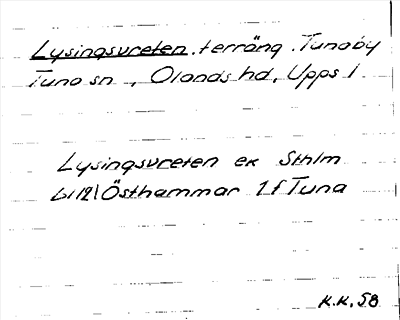 Lysingsvreten. terräng. Tunaby
Tuna sn, Olands hd, Upps l
Lysingsvreten ek Sthlm
Östhammar 1 f Tuna
K.K. 58